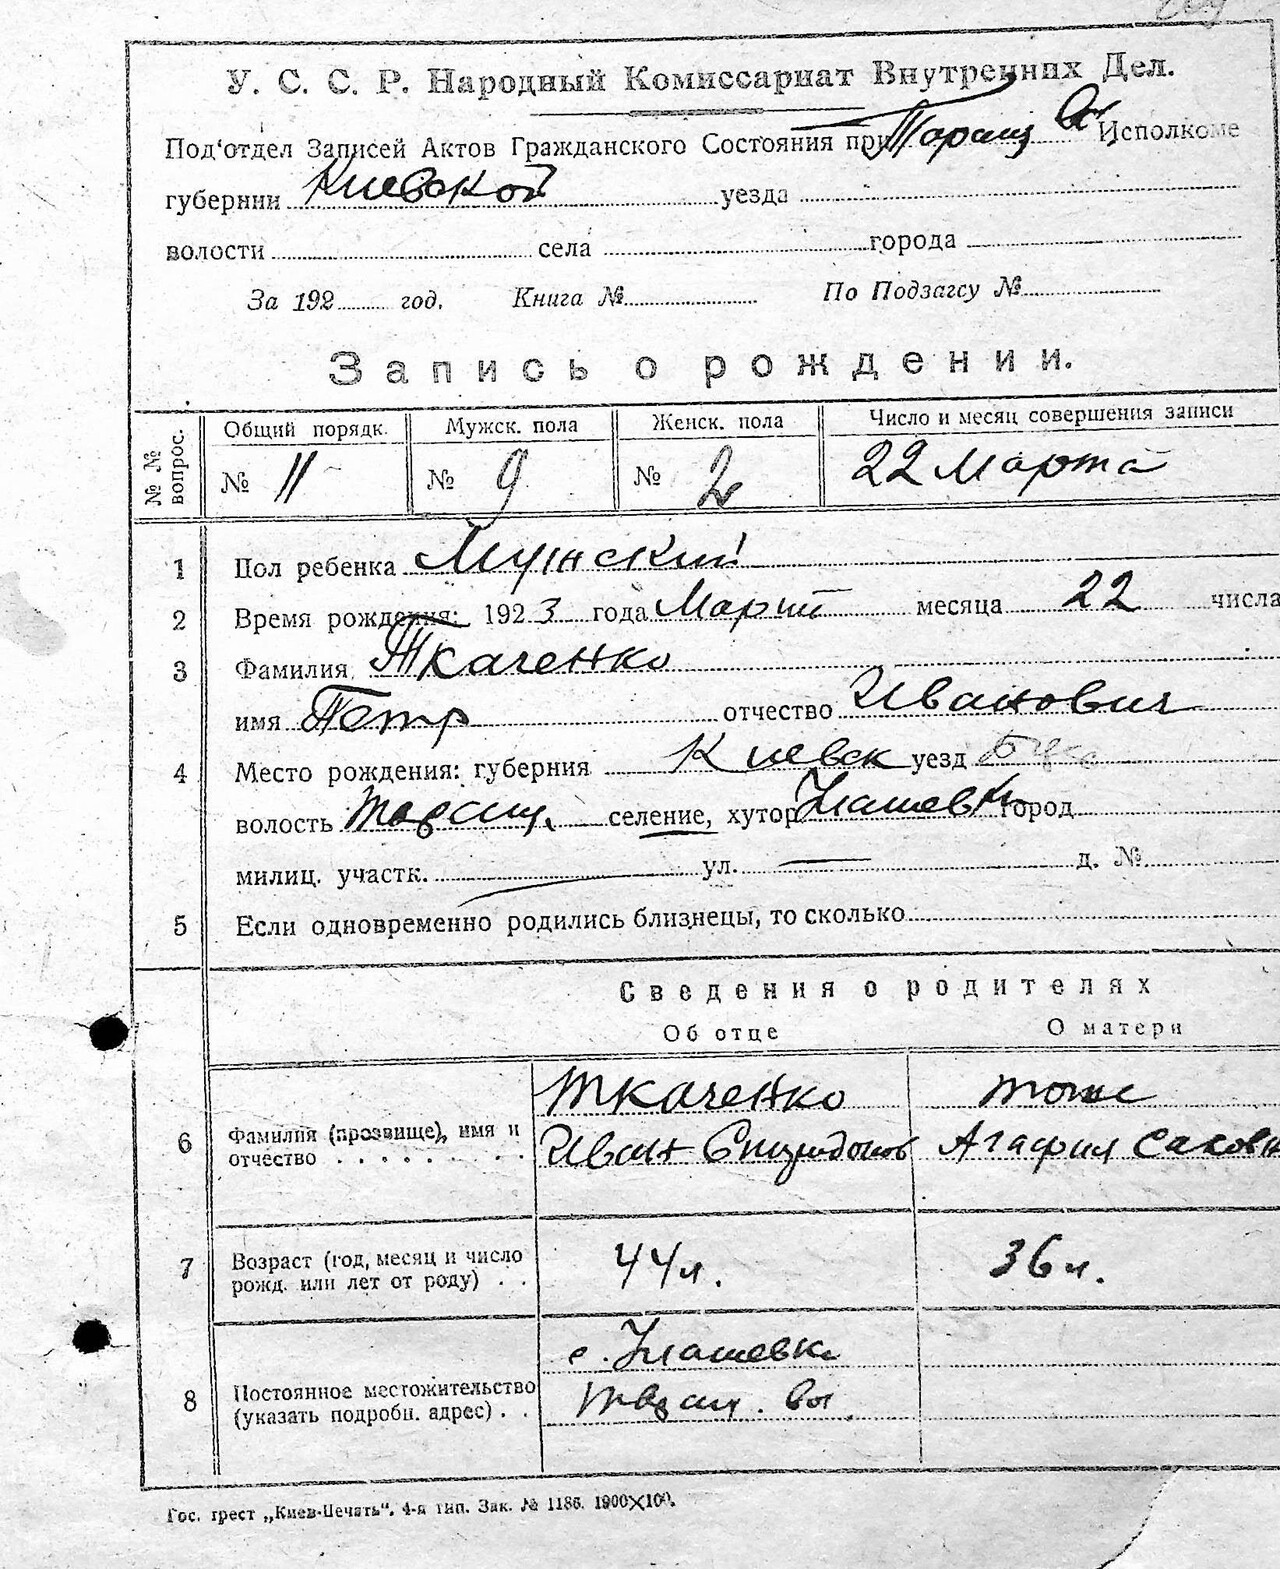 У. С. С. Р. Народный Комиссариат Внутренних Дел.
Под'отдел Записей Актов Гражданского Состояния при Таращ Исполкоме
губернии Киевской уезда
волости села города
За 192 год. Книга № По Подзагсу №
Запись о рождении.
№ № вопрос. Общий порядк. Мужск. пола Женск. пола Число и месяц совершения записи
№ 11 № 9 № 2 22 Марта
1 Пол ребенка Мужский
2 Время рождения: 1923 года Март месяца 22 числа
3 Фамилия Ткаченко
имя Петр отчество Иванович
4 Место рождения: губерния Киевск уезд
волость Таращ. селение, хутор город
милиц. участк. ул. — д. №
5 Если одновременно родились близнецы, то сколько
Сведения о родителях
Об отце О матери
Ткаченко тоже
6 Фамилия (прозвище), имя и
отчество . . . . . . . . Иван Спиридонов Агафия Саков
7 Возраст (год, месяц и число
рожд. или лет от роду) . . 44 л. 36 л.
с.
8 Постоянное местожительство
(указать подробн. адрес) . . Таращ. вол.
Гос. трест „Киев-Печать“. 4-я тип. Зак. № 1186. 1900×100.